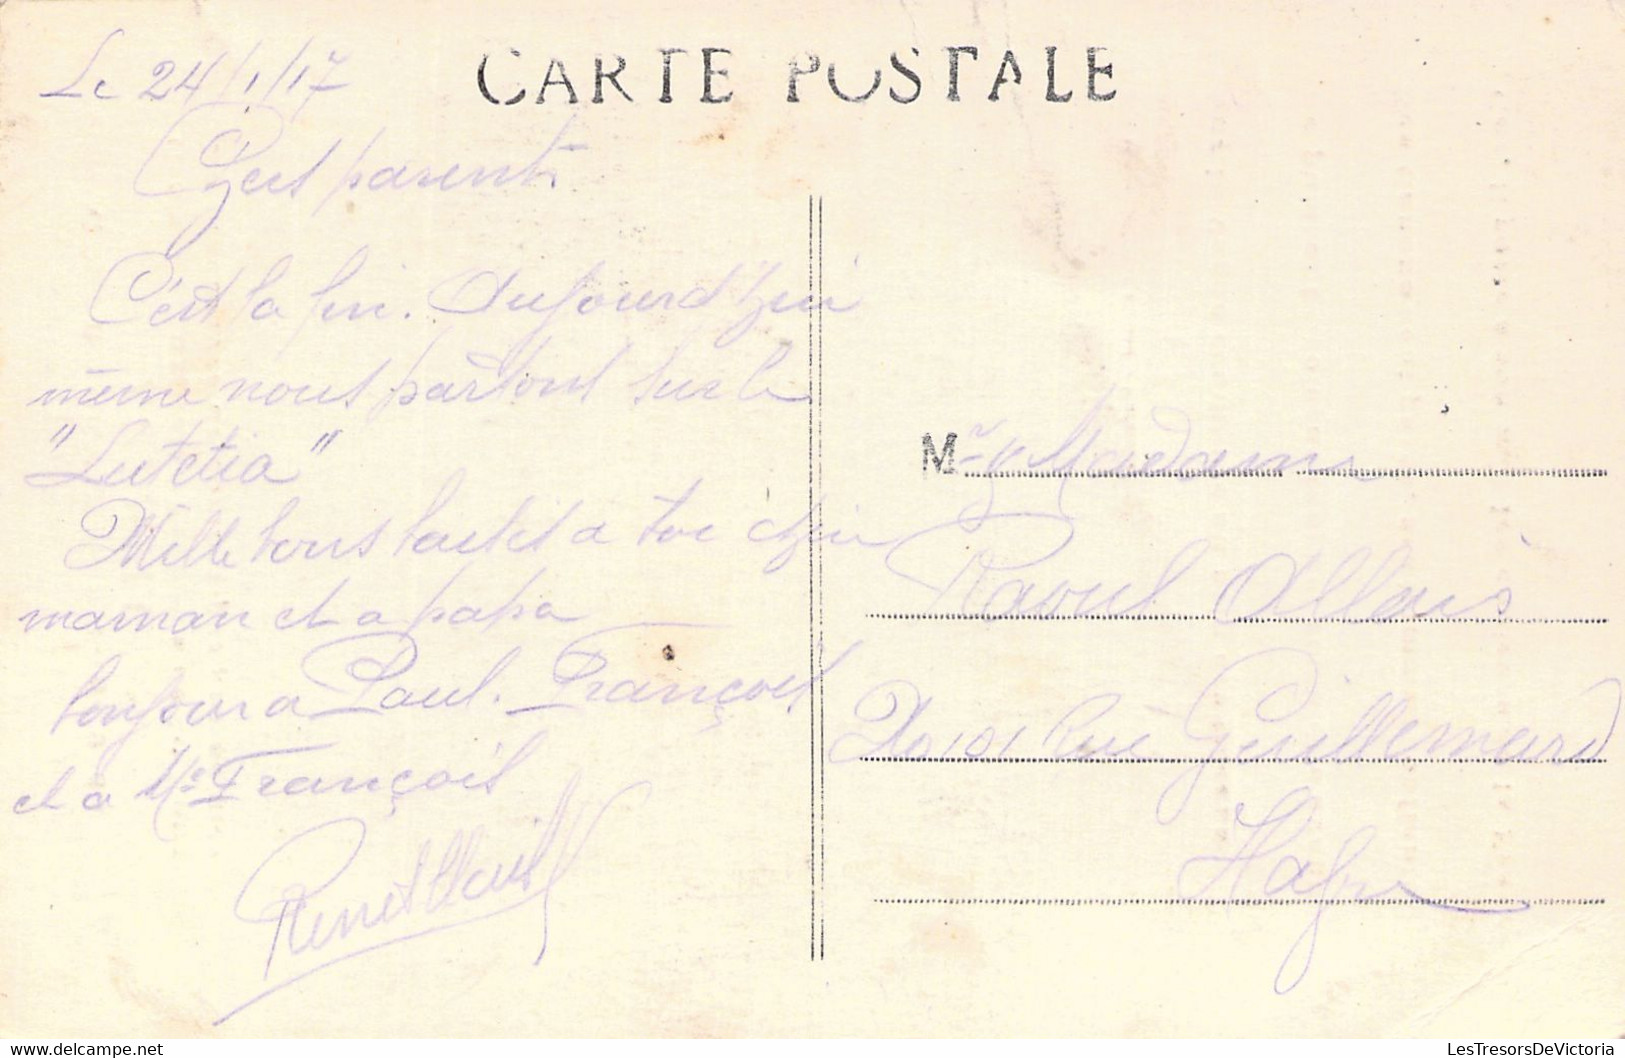 CARTE POSTALE
Le 24/1/17
Chers parents
C'est la fin. Aujourd'hui
même nous partons sur le
"Lutetia"
Mille bons baisers a toi chère
maman et a papa
bonjour a Paul. François
et a Me François
René Allais
Mr & Madame
Raoul Allais
101 Rue Guillemard
Havre
LesTresorsDeVictoria